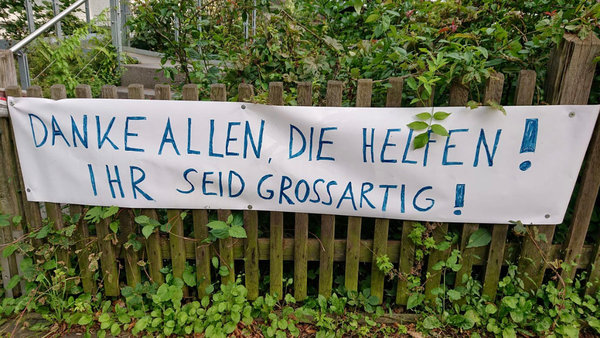 DANKE ALLEN, DIE HELFEN!
IHR SEID GROSSARTIG!